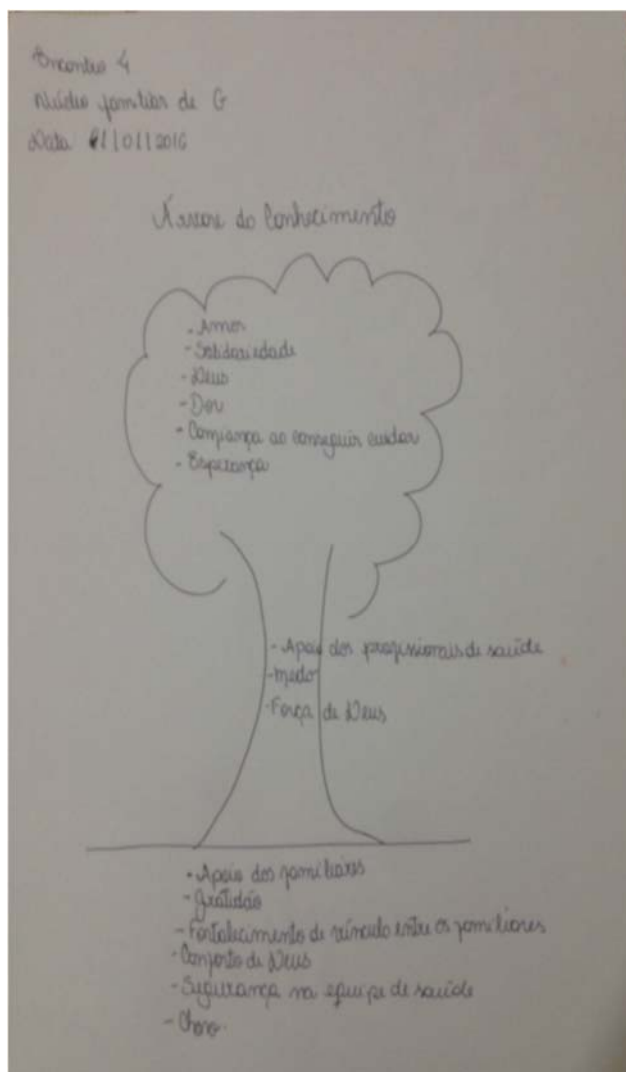 Encontro 4
Núcleo familiar de G
Data 01/2016
Árvore do Conhecimento
- Amor
- Solidariedade
- Deus
- Dor
- Confiança ao conseguir cuidar
- Esperança
- Apoio dos profissionais de saúde
- medo
- Força de Deus
- Apoio dos familiares
- Gratidão
- Fortalecimento de vínculo entre os familiares
- Conforto de Deus
- Segurança na equipe de saúde
- Choro